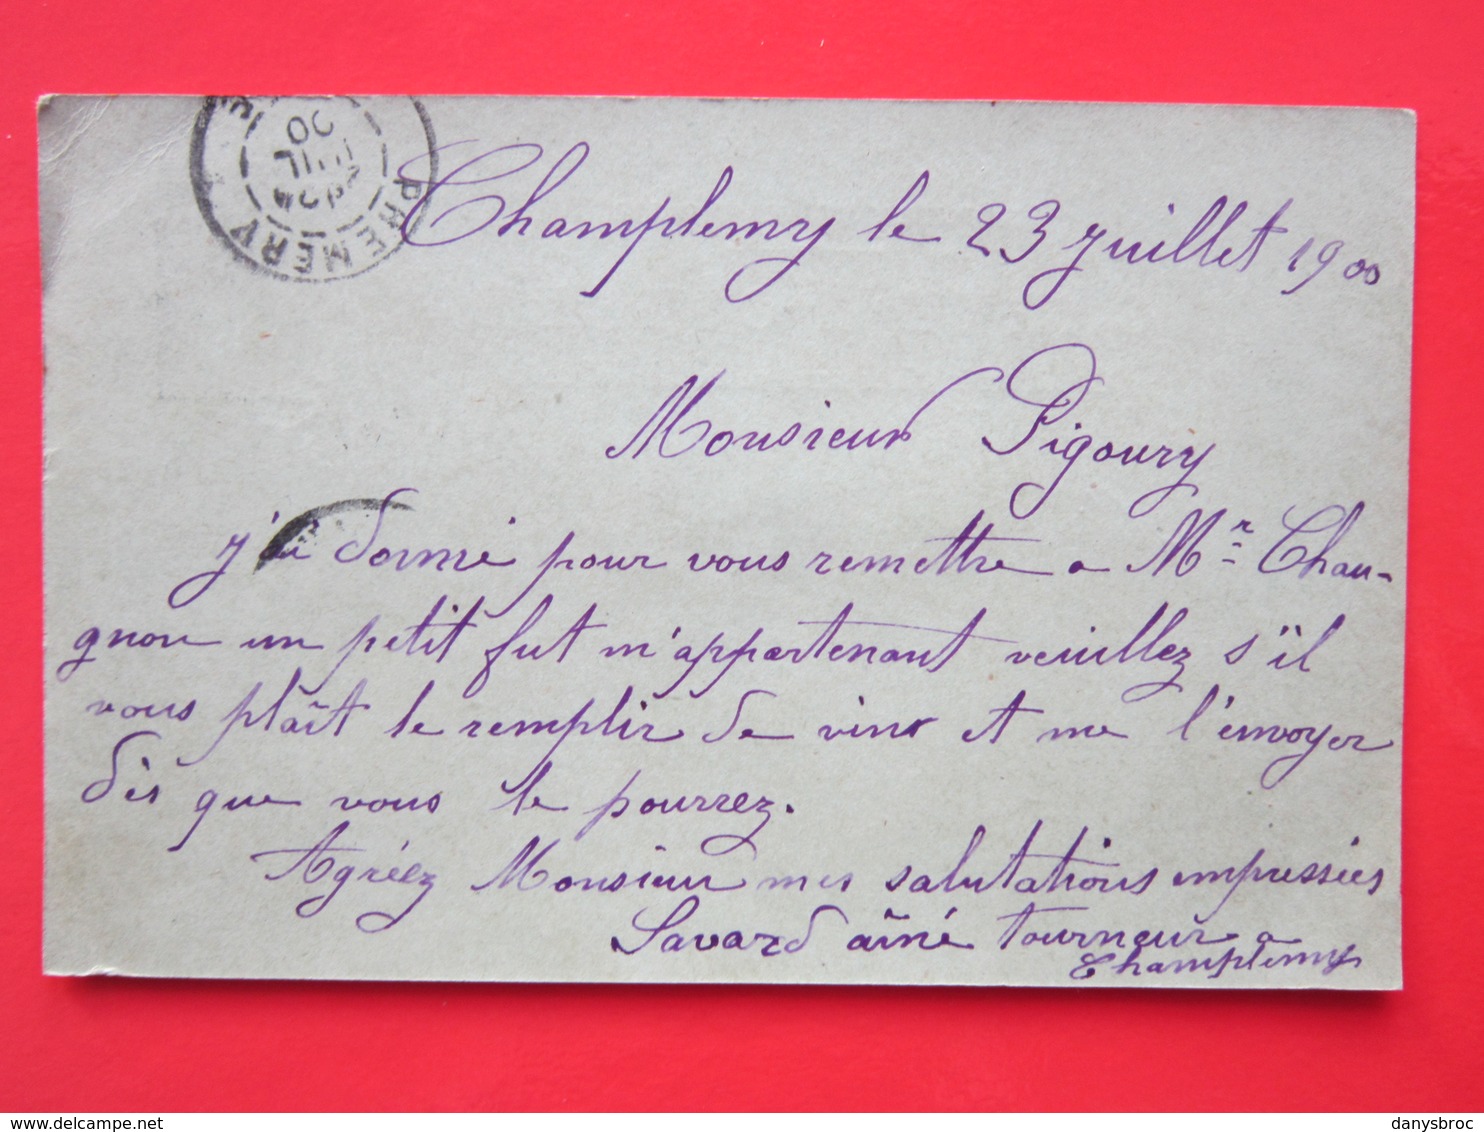 PREMERY
JUIL
00
Champlemy le 23 Juillet 1900
Monsieur Pigoury
j'ai donné pour vous remettre a Mr Chau-
gnon un petit fut m'appartenant veuillez s'il
vous plaît le remplir de vin et me l'envoyer
dès que vous le pourrez.
Agréez Monsieur mes salutations empressées
Savard aîné tourneur a
Champlemy
delcampe.net
danysbroc